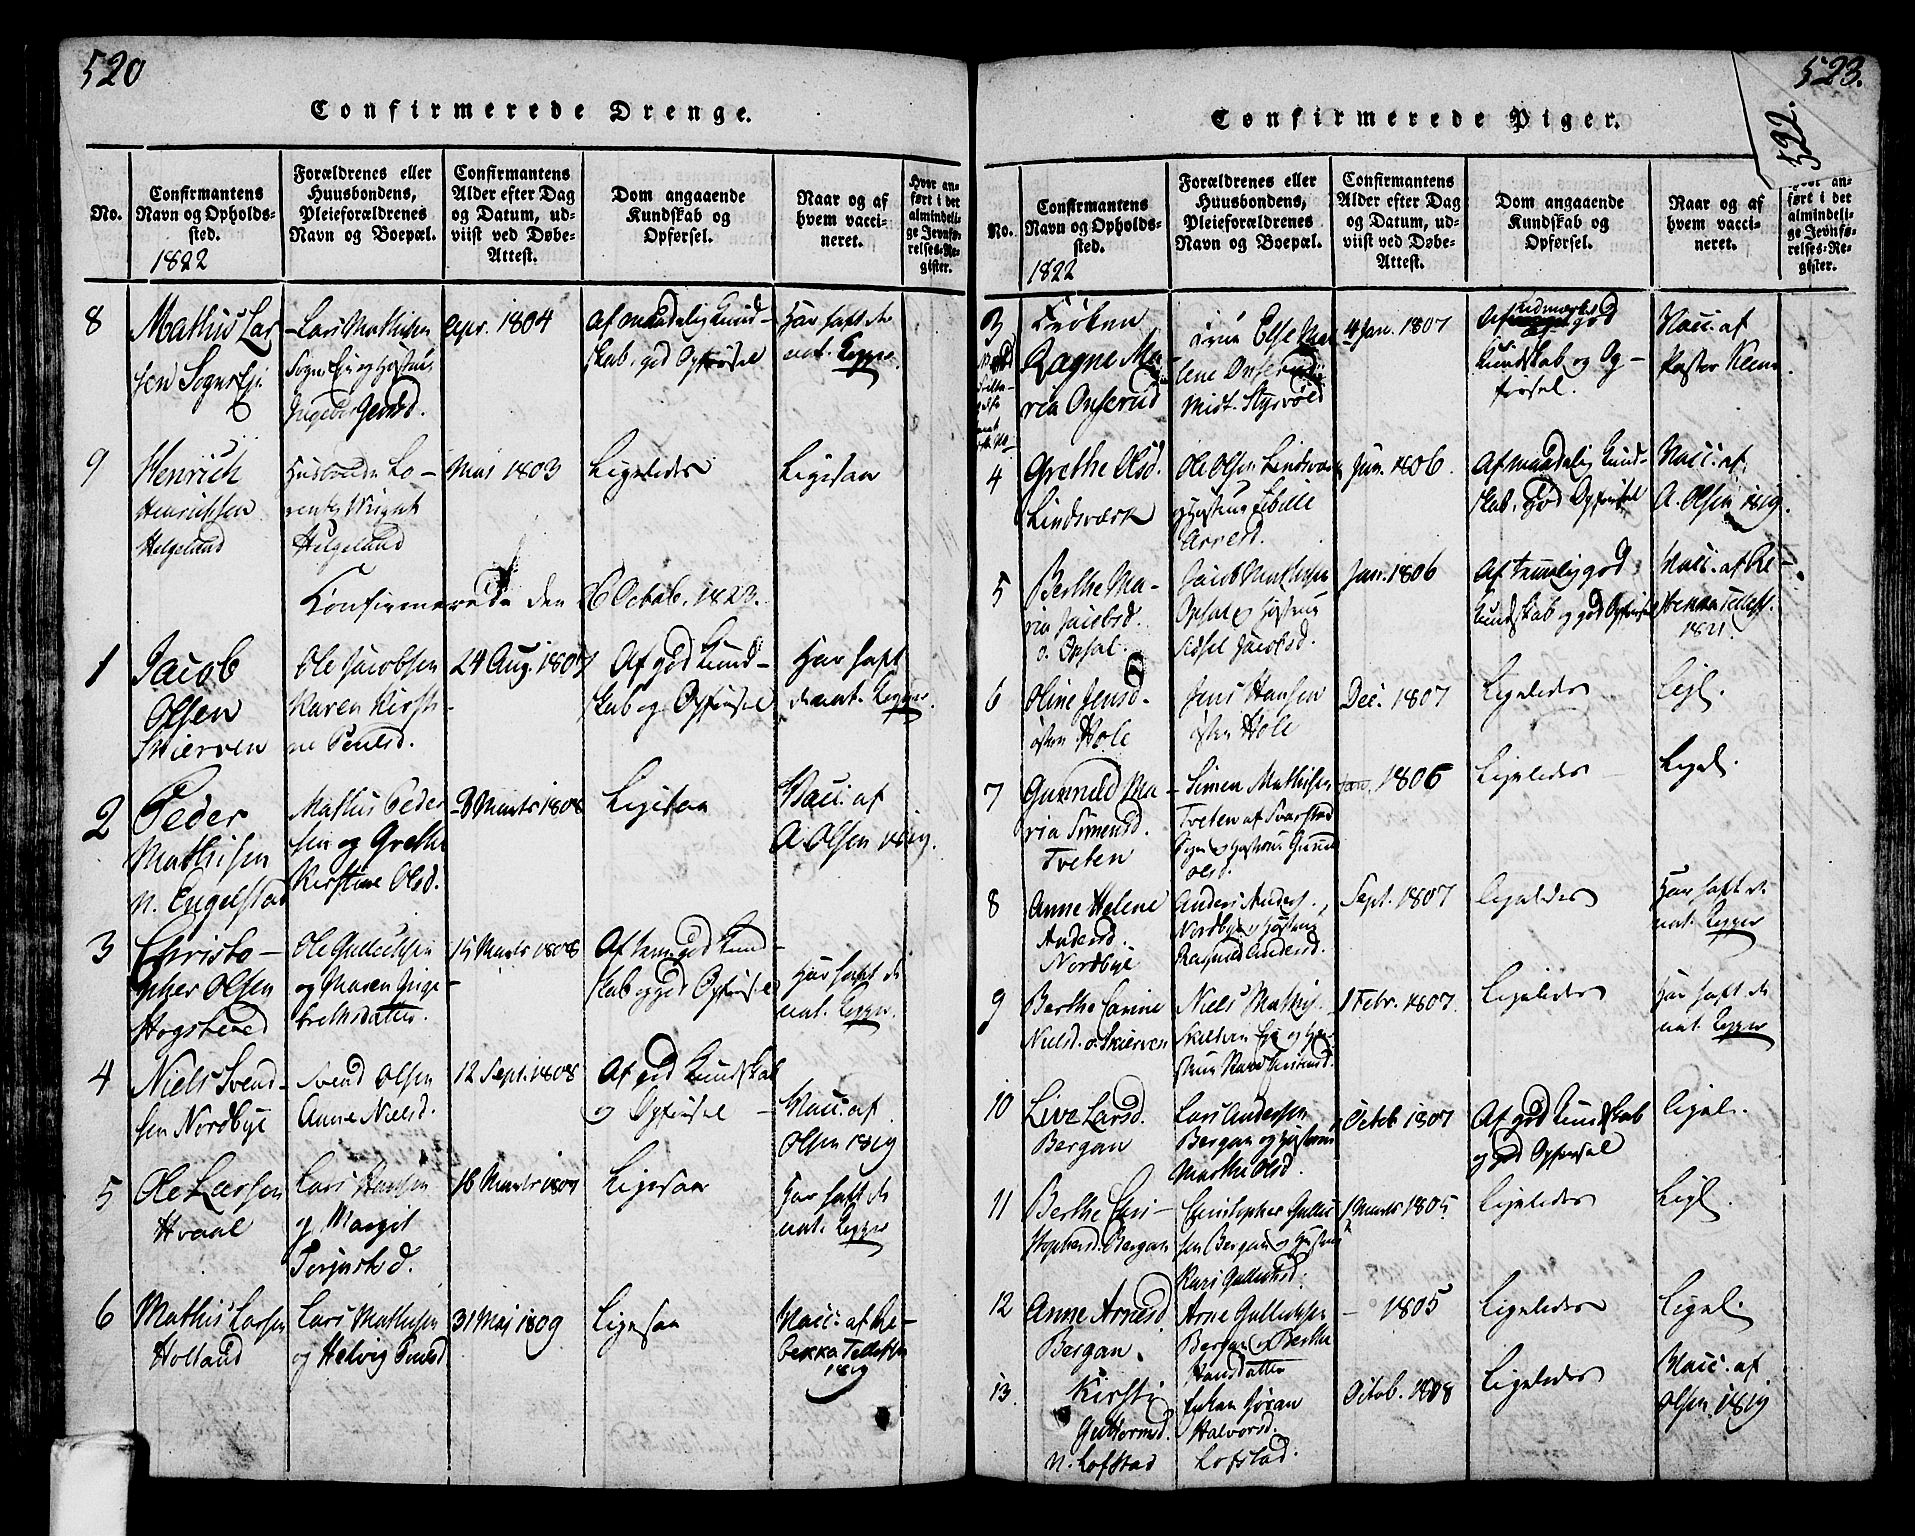 520
Confirmerede Drenge.
No.
Confirmantens
Navn og Opholds-
sted.
1822
Forældrenes eller
Huusbondens,
Pleieforældrenes
Navn og Boepæl.
Confirmantens
Alder efter Dag
og Datum, ud-
viist ved Døbe-
Attest.
Dom angaaende
Kundskab og
Opførsel.
Naar og af
hvem vacci-
neret.
Hvor an-
ført i det
almindeli-
ge Jevnfø-
relses-Re-
gister.
8
Mathis Lar-
sen Sogns Eje
Lars Mathisen
Sogns Eje og Hustru
Apr. 1804
Af maadelig Kund-
skab, god Opførsel
Har haft de
nat. Kopper.
9
Henrich
Henrichsen
Helgeland
Huusbonde Lo-
rentz Wright
Helgeland
Mai 1803
Ligeledes
Ligesaa
Confirmerede den 26 Octob. 1823.
1
Jacob
Olsen
Skierven
Ole Jacobsen
Karen Kirsti-
ne Poulsd.
24 Aug. 1807
Af god Kund-
skab og Opførsel
Har haft
de nat. Kopper.
2
Peder
Mathisen
n. Engelstad
Mathis Peder-
sen og Grethe
Kirstine Olsd.
8 Marts 1808
Ligesaa
Vacc. af
A. Olsen 1819.
3
Christo-
pher Olsen
Hogstved
Ole Gulliksen
og Maren Inge-
brethsdatter.
15 Marts 1808
Af tem. god Kund-
skab og god Opførsel
Har haft de
nat. Kopper.
4
Niels Svend-
sen Nordbye
Svend Olsen
Anne Nielsd.
12 Sept. 1808
Af god Kundskab
og Opførsel
Vacc. af
Olsen 1819
5
Ole Larsen
Hvaal
Lars Hansen
og Margit
Torjusd.
16 Marts 1807
Ligesaa
Har haft de
nat. Kopper
6
Mathis Larsen
Holland
Lars Mathisen
og Helvig Poulsd
31 Maj 1809
Ligesaa
Vacc. af Re-
bekka Tellefsen
1819
523.
522.
Confirmerede Piger.
No.
Confirmantens
Navn og Opholds-
sted.
1822
Forældrenes eller
Huusbondens,
Pleieforældrenes
Navn og Boepæl.
Confirmantens
Alder efter Dag
og Datum, ud-
viist ved Døbe-
Attest.
Dom angaaende
Kundskab og
Opførsel.
Naar og af
hvem vacci-
neret.
Hvor an-
ført i det
almindeli-
ge Jevnfø-
relses-Re-
gister.
3
Frøken
Ragne Ma-
ria Onserud
Frue Else Ma-
lene Onserud
Midt. Styrvold
4 Jan. 1807
Af udmærket god
Kundskab og Op-
førsel.
Vacc. af
Pastor Klem
4
Grethe Olsd.
Lindsværk
Ole Olsen Lindsværk
og Hustrue Sibille
Arnesd.
Jun. 1806.
Af maadelig Kund-
skab, god Opførsel
Vacc. af
A. Olsen 1819.
5
Berthe Ma-
ria Jacobsd.
o. Opsal.
Jacob Mathisen
Opsal og Hustrue
Sidsel Jacobsd.
Jan. 1806
Af temmelig god
Kundskab og god Opførsel
Vacc. af Re-
bekka Tellefs.
1821.
6
Oline Jensd.
østre Hole
Jens Hansen
østre Hole
Dec. 1807
Ligeledes
Ligel.
7
Gunnild Ma-
ria Simensd.
Tveten
Simen Mathisen
Tveten af Svarstad
Sogn og Hustrue Gunnel
Olsd.
Jan. 1806
Ligeledes
Ligel.
8
Anne Helene
Andersd.
Nordbye
Anders Anders.
Nordbye og Hustrue
Ragnild Andersd.
Sept. 1807
Ligeledes
Har haft de
nat. Kopper
9
Berthe Carine
Nielsd. o. Skierven
Niels Mathis.
1 Febr. 1807.
Ligeledes
Har haft de
nat. Kopper
10
Live Larsd.
Bergan
Lars Andersen
Bergan og Hustrue
Marthe Olsd.
Octob. 1807
Af god Kundskab
og god Opførsel
Ligel.
11
Berthe Chri-
stophersd. Bergan
Christopher Gullik-
sen Bergan og Hustrue
Kari Gulliksd.
1 Marts 1805
Ligeledes
Ligel.
12
Anne Arnesd
Bergan
Arne Gulliksen
Bergan og Berthe
Hansdatter
- 1805
Ligeledes
Ligel.
13.
Kirsti
Guttormsd.
n. Lofstad
Enken Gøran
Halvorsd.
Lofstad.
Octob. 1808
Ligeledes
Vacc. af
Olsen 1819